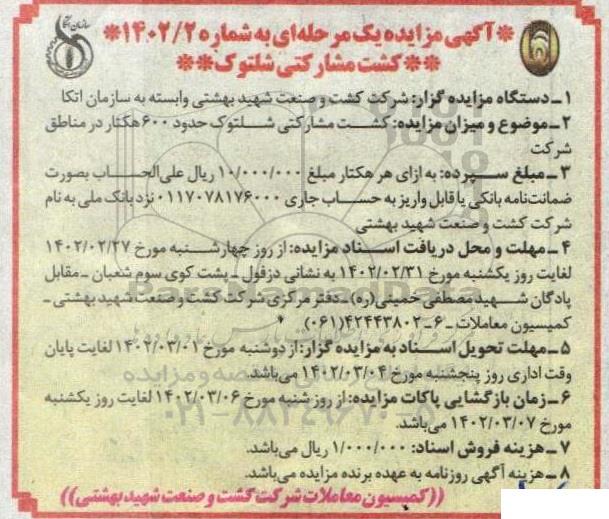 *آگهی مزایده یک مرحله‌ای به شماره ۱۴۰۲/۲*
**کشت مشارکتی شلتوک**
۱ـ دستگاه مزایده گزار: شرکت کشت و صنعت شهید بهشتی وابسته به سازمان اتکا
۲ـ موضوع و میزان مزایده: کشت مشارکتی شلتوک حدود ۶۰۰ هکتار در مناطق
شرکت
۳ـ مبلغ سپرده: به ازای هر هکتار مبلغ ۱۰/۰۰۰/۰۰۰ ریال علی‌الحساب بصورت
ضمانت‌نامه بانکی یا قابل واریز به حساب جاری ۰۱۱۷۰۷۸۱۷۶۰۰۰ نزد بانک ملی به نام
شرکت کشت و صنعت شهید بهشتی
۴ـ مهلت و محل دریافت اسناد مزایده: از روز چهارشنبه مورخ ۱۴۰۲/۰۲/۲۷
لغایت روز یکشنبه مورخ ۱۴۰۲/۰۲/۳۱ به نشانی دزفول ـ پشت کوی سوم شعبان ـ مقابل
پادگان شهید مصطفی خمینی(ره) ـ دفتر مرکزی شرکت کشت و صنعت شهید بهشتی ـ
کمیسیون معاملات ـ ۶ـ۴۲۴۴۳۸۰۲(۰۶۱)
۵ـ مهلت تحویل اسناد به مزایده گزار: از دوشنبه مورخ ۱۴۰۲/۰۳/۰۱ لغایت پایان
وقت اداری روز پنجشنبه مورخ ۱۴۰۲/۰۳/۰۴ می‌باشد.
۶ـ زمان بازگشایی پاکات مزایده: از روز شنبه مورخ ۱۴۰۲/۰۳/۰۶ لغایت روز یکشنبه
مورخ ۱۴۰۲/۰۳/۰۷ می‌باشد.
۷ـ هزینه فروش اسناد: ۱/۰۰۰/۰۰۰ ریال می‌باشد.
۸ـ هزینه آگهی روزنامه به عهده برنده مزایده می‌باشد.
((کمیسیون معاملات شرکت کشت و صنعت شهید بهشتی))
ParsNamadData
۰۲۱-۸۸۳۴۹۶۷۰-۵